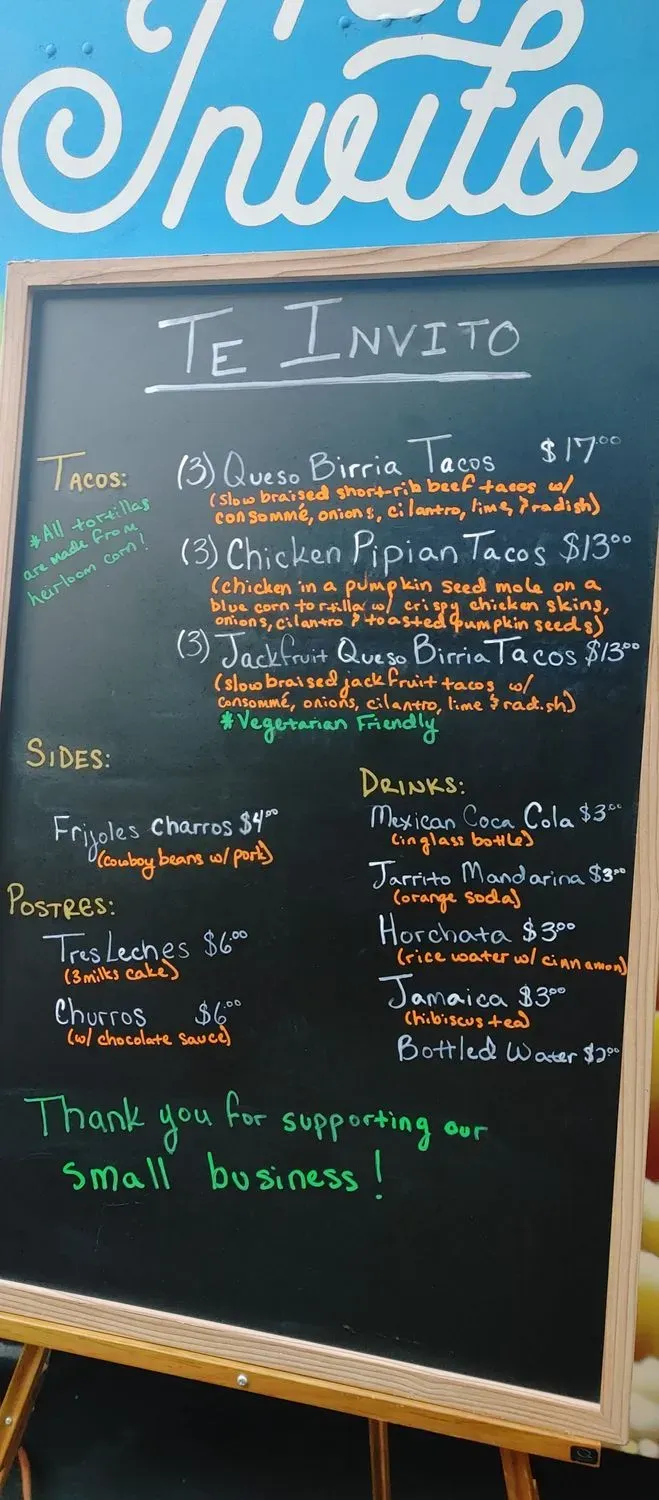 Te.
Invito
TE INVITO
TACOS:
*All tortillas
are made from
heirloom corn!
(3) Queso Birria Tacos $17.00
(slow braised short-rib beef tacos w/
consommé, onions, cilantro, lime, & radish)
(3) Chicken Pipian Tacos $13.00
(chicken in a pumpkin seed mole on a
blue corn tortilla w/ crispy chicken skins,
onions, cilantro & toasted pumpkin seeds)
(3) Jackfruit Queso Birria Tacos $13.00
(slow braised jackfruit tacos w/
consommé, onions, cilantro, lime & radish)
*Vegetarian Friendly
SIDES:
Frijoles Charros $4.00
(cowboy beans w/ pork)
POSTRES:
Tres Leches $6.00
(3 milks cake)
Churros $6.00
(w/ chocolate sauce)
DRINKS:
Mexican Coca Cola $3.00
(in glass bottle)
Jarrito Mandarina $3.00
(orange soda)
Horchata $3.00
(rice water w/ cinnamon)
Jamaica $3.00
(hibiscus tea)
Bottled Water $2.00
Thank you for supporting our
small business!